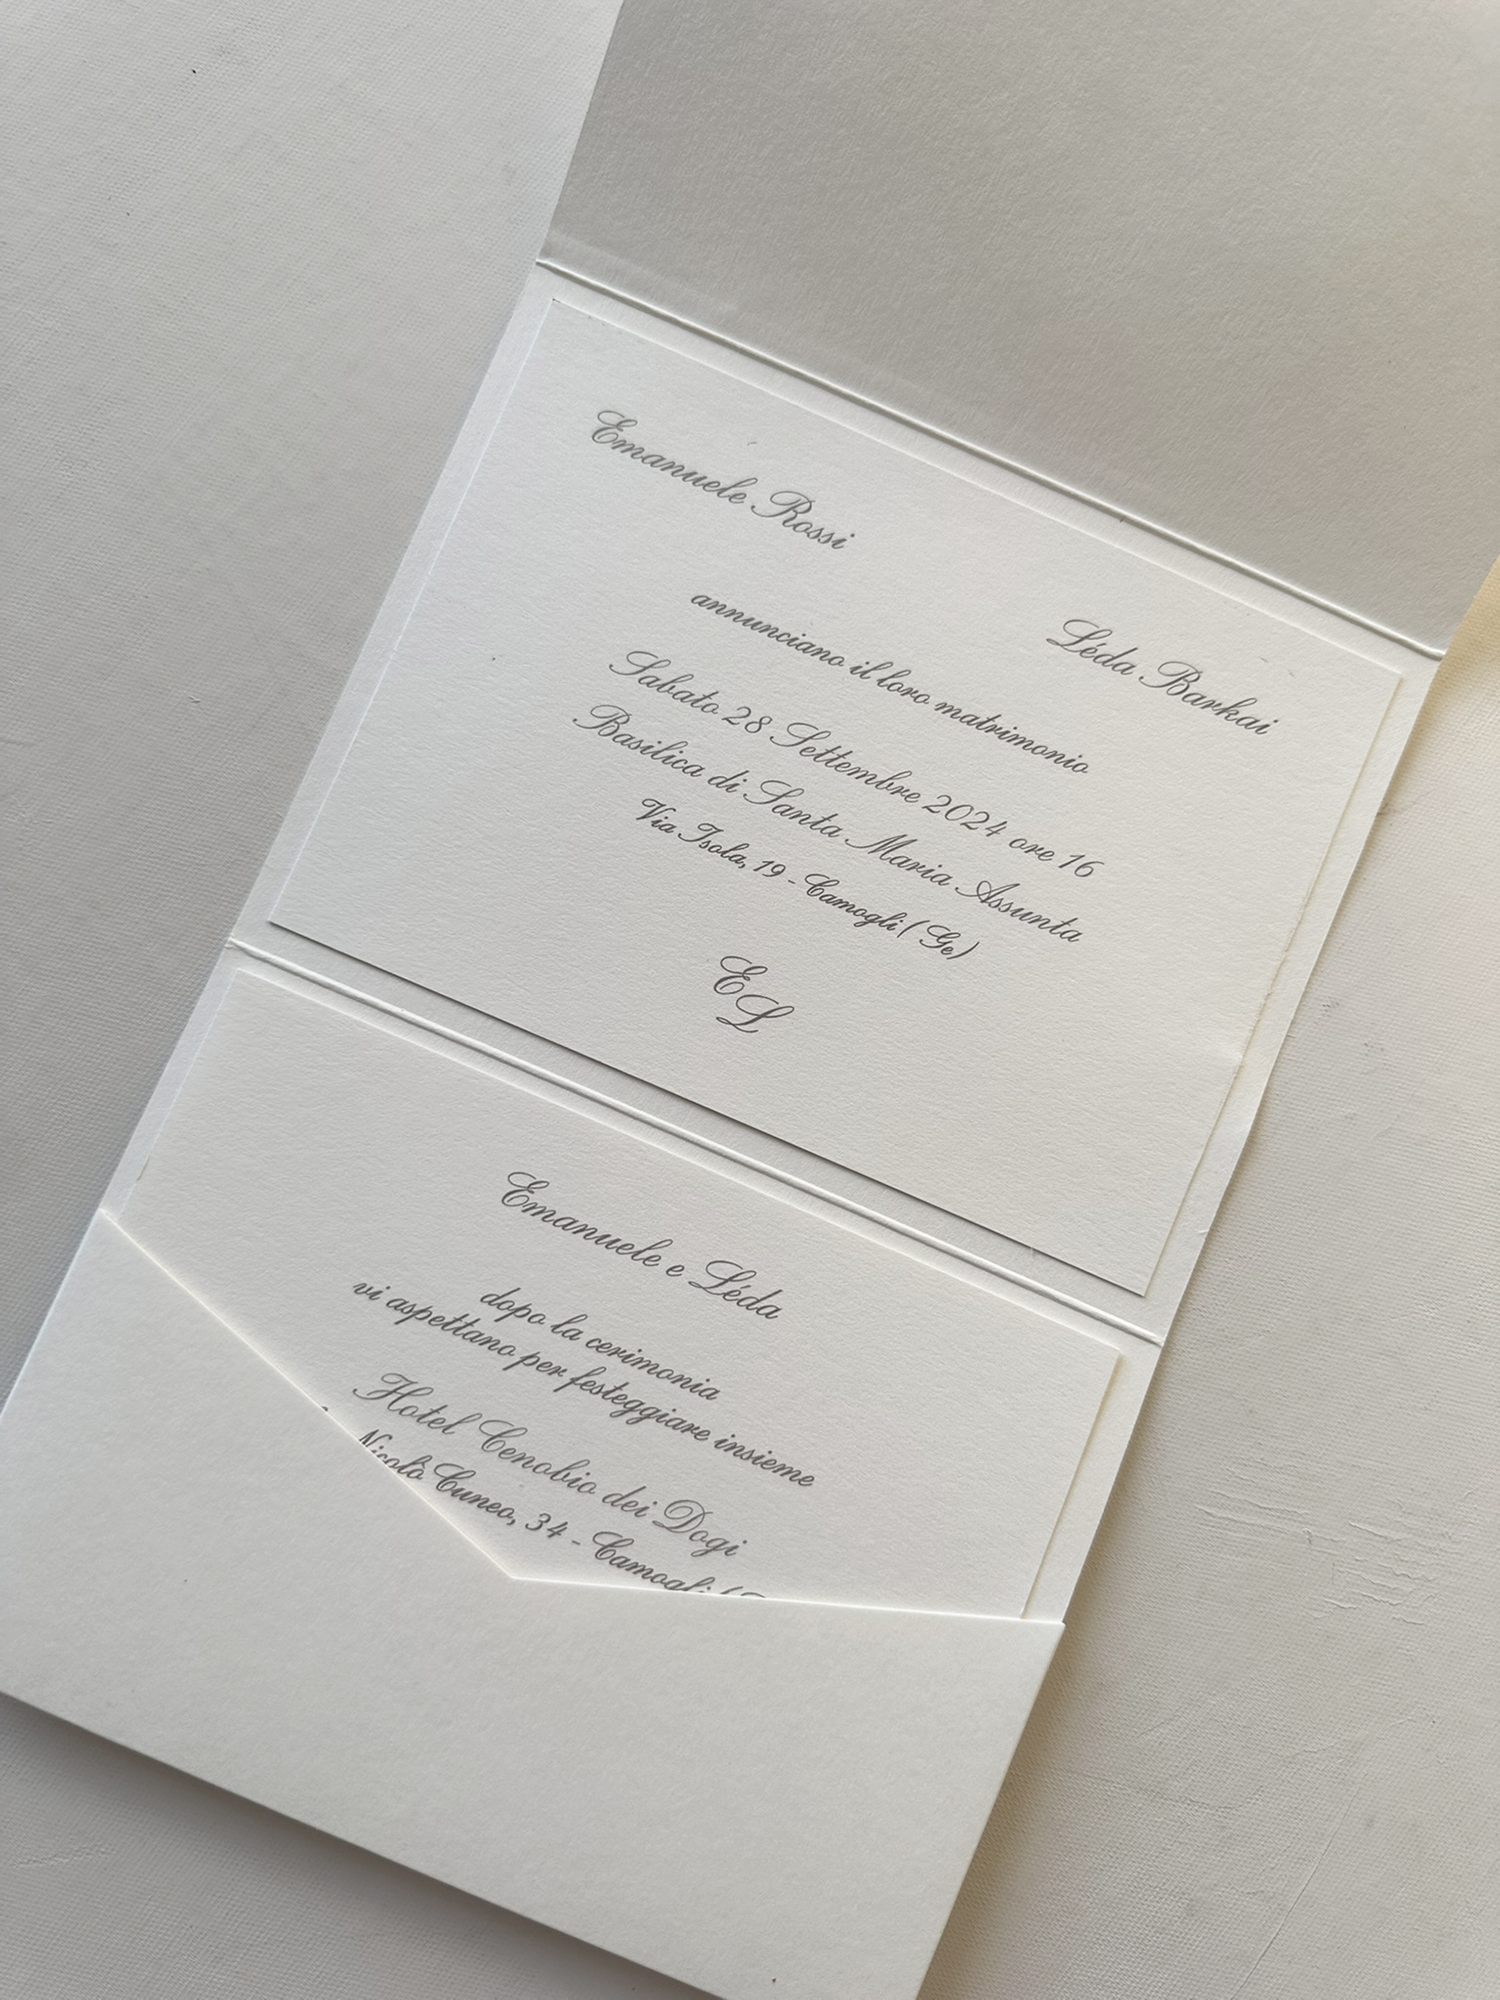 Emanuele Rossi
Léda Barkai
annunciano il loro matrimonio
Sabato 28 Settembre 2024 ore 16
Basilica di Santa Maria Assunta
Via Isola, 19 - Camogli ( Ge)
E
L
Emanuele e Léda
dopo la cerimonia
vi aspettano per festeggiare insieme
Hotel Cenobio dei Dogi
Nicolò Cuneo, 34 - Camogli (